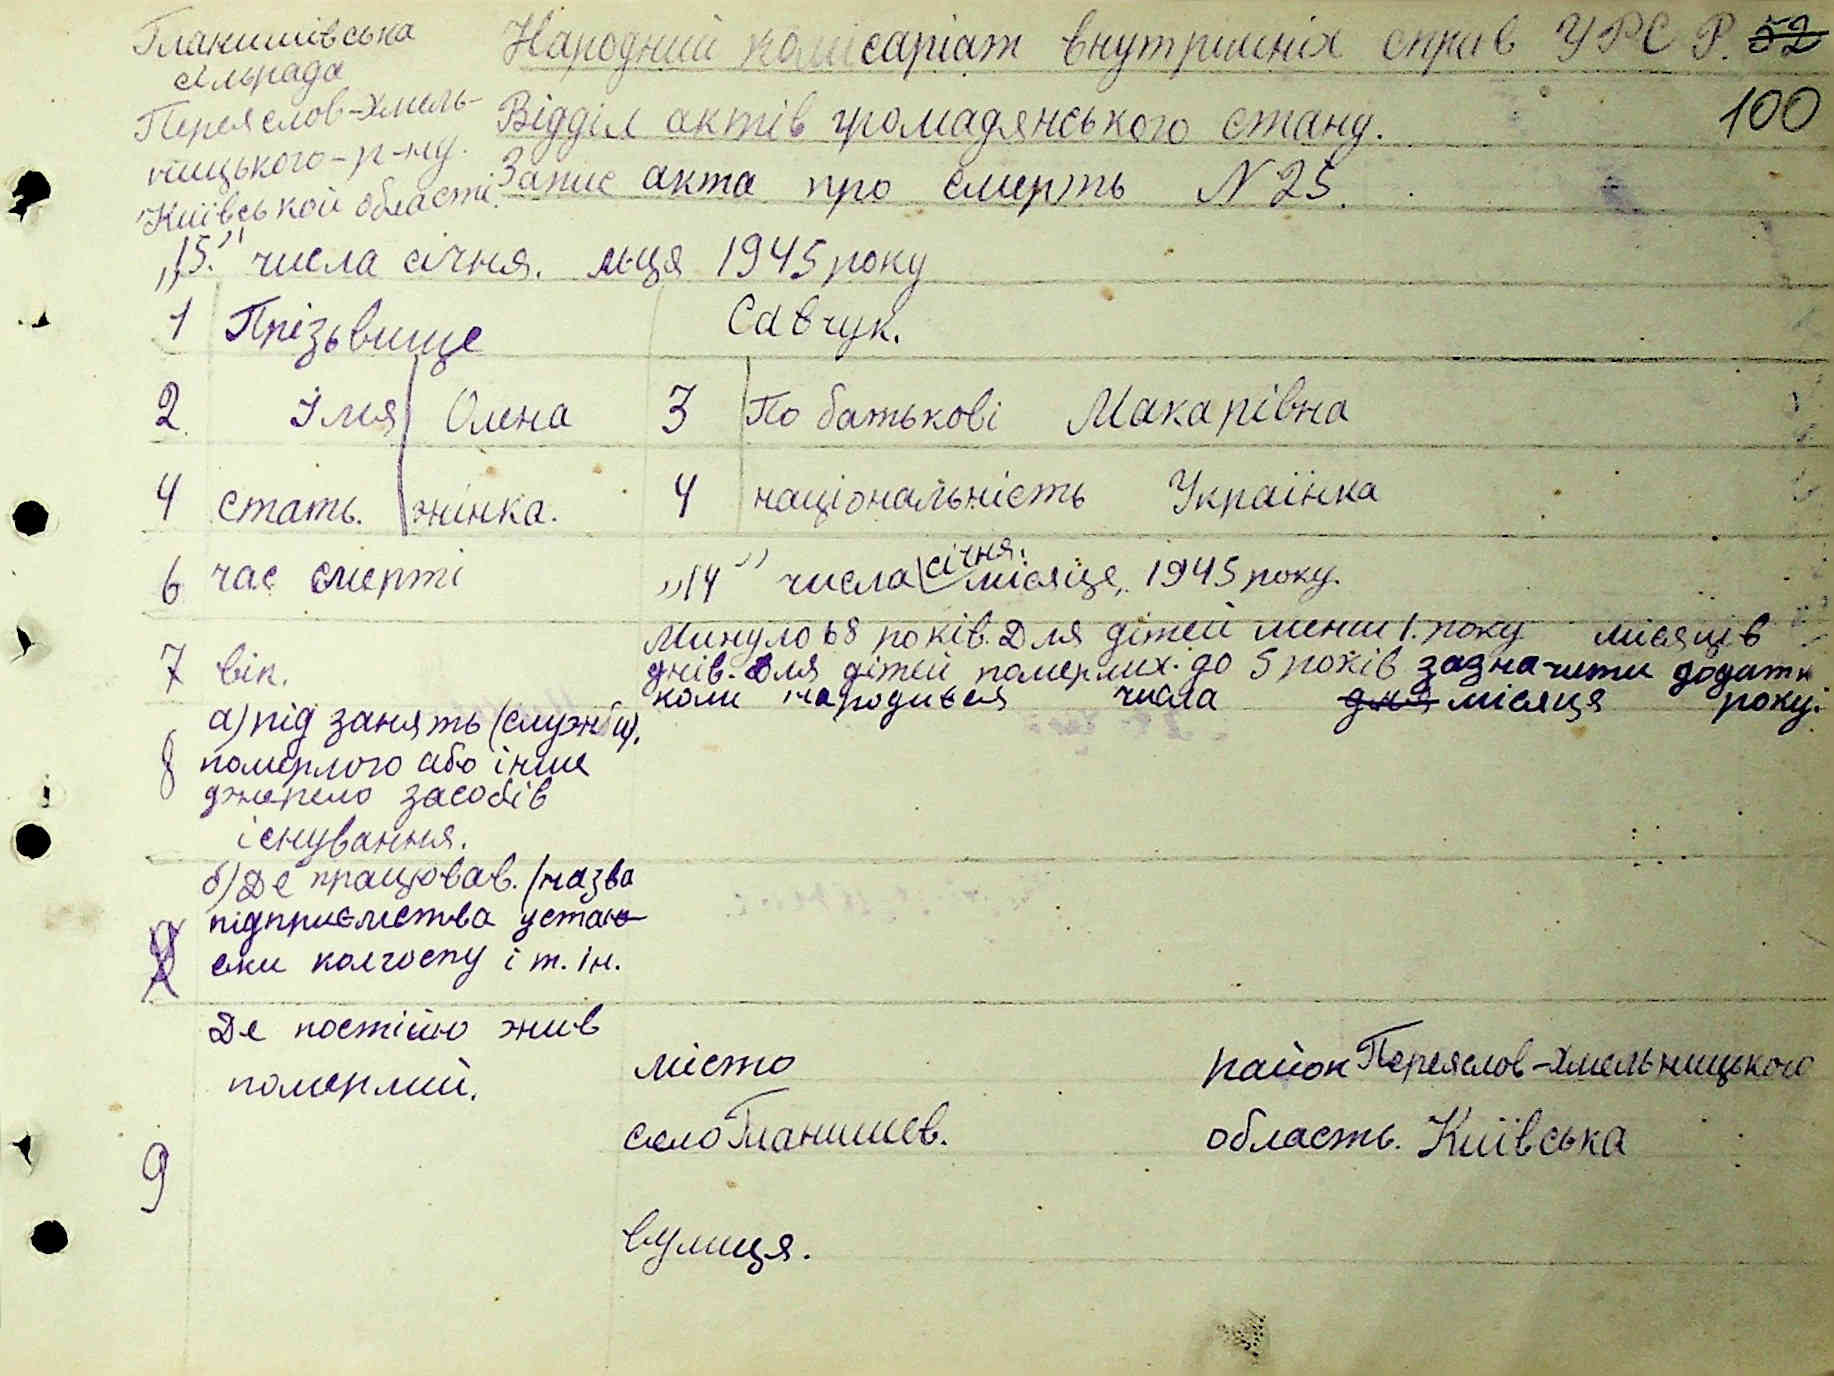 Гланишівська
сільрада
Переяслов-Хмель-
ницького-р-ну.
Київської області.
Народний комісаріат внутрішніх справ УРСР. 52
100
Відділ актів громадянського стану.
Запис акта про смерть N 25.
„15." числа січня. м-ця 1945 року
1 Прізьвище Савчук.
2 Імя Олена 3 По батькові Макарівна
4 стать. жінка. 4 національність Українка
6 час смерті „14" числа січня. місяце, 1945 року.
7 вік. Минуло 68 років. Для дітей менш 1. року місяців
днів. Для дітей померлих. до 5 років зазначити додатк
коли народився числа дня місяця року.
8 а) під занять (служби).
померлого або інше
джерело засобів
існування.
б) Де працював. (назва
підприємства устано
9 ски колгоспу і т. ін.
Де постійно жив
померлий.
місто район Переяслов-Хмельницького
село Гланишев. область. Київська
9
вулиця.